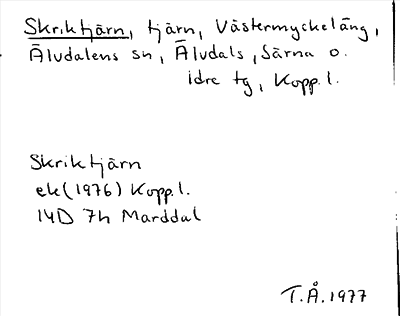 Skriktjärn, tjärn, Västermyckeläng,
Älvdalens sn, Älvdals, Särna o.
Idre tg, Kopp. l.
Skriktjärn
ek (1976) Kopp. l.
14D 7h Marddal
T.Å. 1977